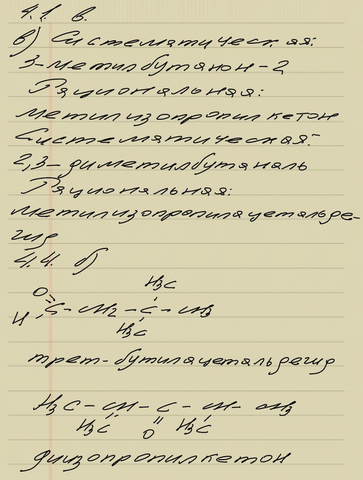 4.1. в.
в) Систематическая:
3-метилбутанон-2
Рациональная:
метилизопропилкетон
Систематическая:
2,3-диметилбутаналь
Рациональная:
метилизопропилацетальде-
гид
4.4. б)
H3C
O
C - CH2 - C - CH3
H
H3C
трет-бутилацетальдегид
H3C - CH - C - CH - CH3
H3C O H3C
диизопропилкетон